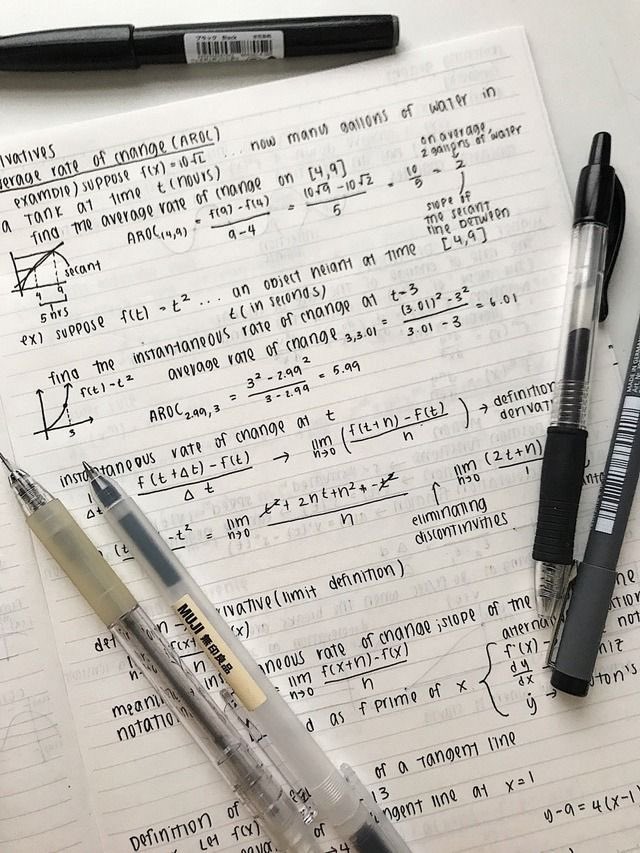 ブラック Black
erivatives
verage rate of change (AROC)
example) suppose f(x) = 10√x ... how many gallons of water in
a tank at time t (hours)
find the average rate of change on [4,9]
AROC(4,9) = f(9) - f(4) / 9-4 = 10√9 - 10√2 / 5 = 10 / 5 = 2
on average,
2 gallons of water
slope of
the secant
line between
[4,9]
secant
4 9
5 hrs
ex) suppose f(t) = t² ... an object height at time
t (in seconds)
find the instantaneous rate of change at t=3
average rate of change 3,3.01 = (3.01)² - 3² / 3.01 - 3 = 6.01
f(t)-t²
3
AROC 2.99,3 = 3² - 2.99² / 3 - 2.99 = 5.99
instantaneous rate of change at t
f(t+Δt) - f(t) / Δt → lim h→0 (f(t+h) - f(t) / h) → definition
derivat
-t² = lim h→0 t² + 2ht + h² + -t² / h
lim h→0 (2t+h) / 1
↑
eliminating
discontinuities
rivative (limit definition)
(x)
aneous rate of change; slope of the
= lim h→0 f(x+h) - f(x) / h
meani
notatio
d as f prime of x
f'(x)
dy/dx
ẏ → ton's
MUJI 無印良品
of a tangent line
13
Definition of
ngent line at x=1
Let f(x)
y-9 = 4(x-1)